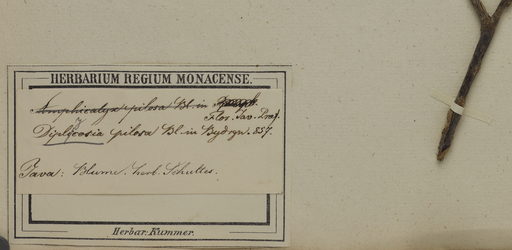 HERBARIUM REGIUM MONACENSE.
Amphicalyx pilosa Bl. in
Flor. Jav. Praef.
Diplycosia pilosa Bl. in Bydrgn. 857.
Java: Blume. herb. Schultes.
Herbar. Kummer.